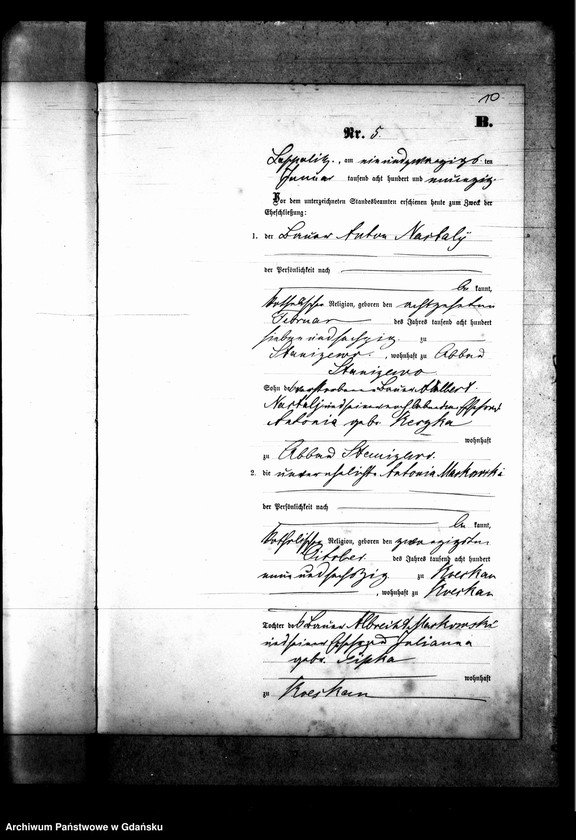 10
B.
Nr. 5.
am einundzwanzigsten
Januar tausend acht hundert und neunzig
Vor dem unterzeichneten Standesbeamten erschienen heute zum Zweck der
Eheschließung:
1. der Bauer Anton Nastaly
der Persönlichkeit nach
be kannt,
katholischer Religion, geboren den achtzehnten
Februar des Jahres tausend acht hundert
siebenundsechzig zu
Stanizewo, wohnhaft zu Abbau
Stanizewo
Sohn des verstorbenen Bauer Adalbert
Nastaly und seiner verstorbenen Ehefrau
Antonia geb.
wohnhaft
zu Abbau Stanizewo.
2. die unverehelichte Antonia Markowski
der Persönlichkeit nach
be kannt,
katholischer Religion, geboren den zwanzigsten
October des Jahres tausend acht hundert
neunundsechszig zu Kveskau
, wohnhaft zu Kveskau
Tochter des Bauer Albrecht Markowski
und seiner Ehefrau Julianna
geb.
wohnhaft
zu Kveskau
Archiwum Państwowe w Gdańsku